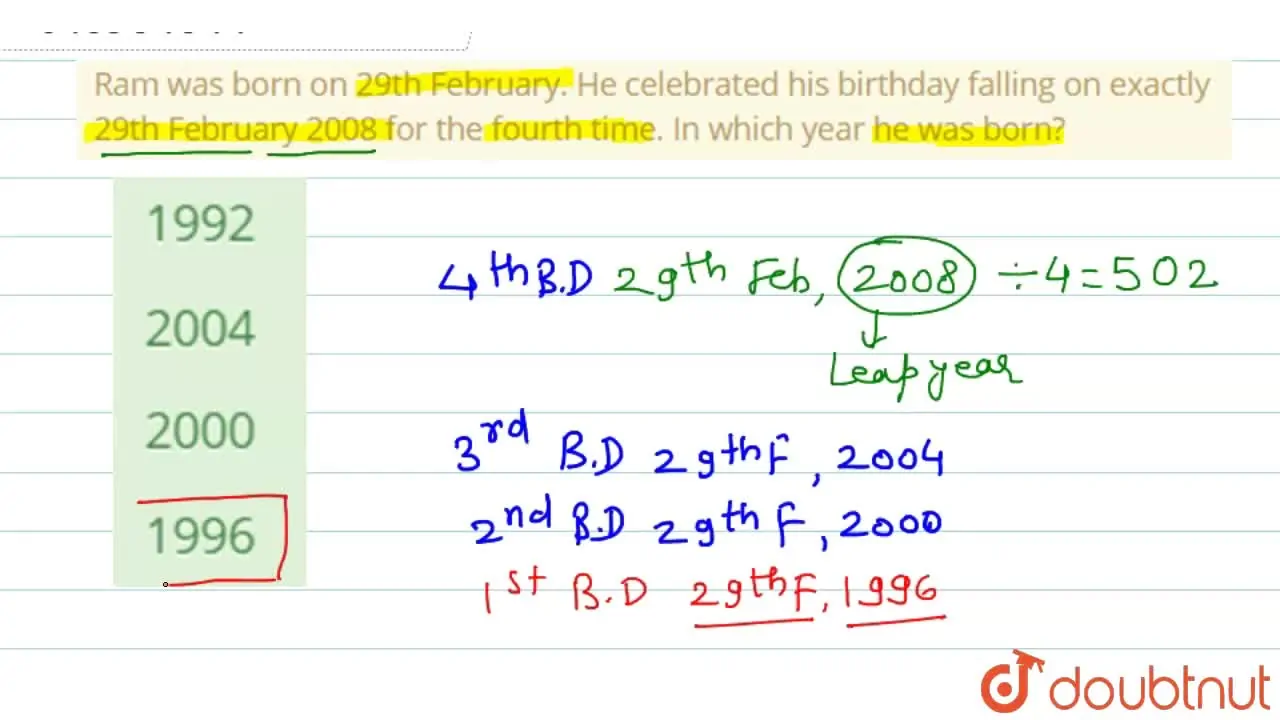 Ram was born on 29th February. He celebrated his birthday falling on exactly
29th February 2008 for the fourth time. In which year he was born?
1992
2004
2000
1996
4th B.D 29th Feb, 2008 ÷ 4 = 502
Leap year
3rd B.D 29th F, 2004
2nd B.D 29th F, 2000
1st B.D 29th F, 1996
doubtnut